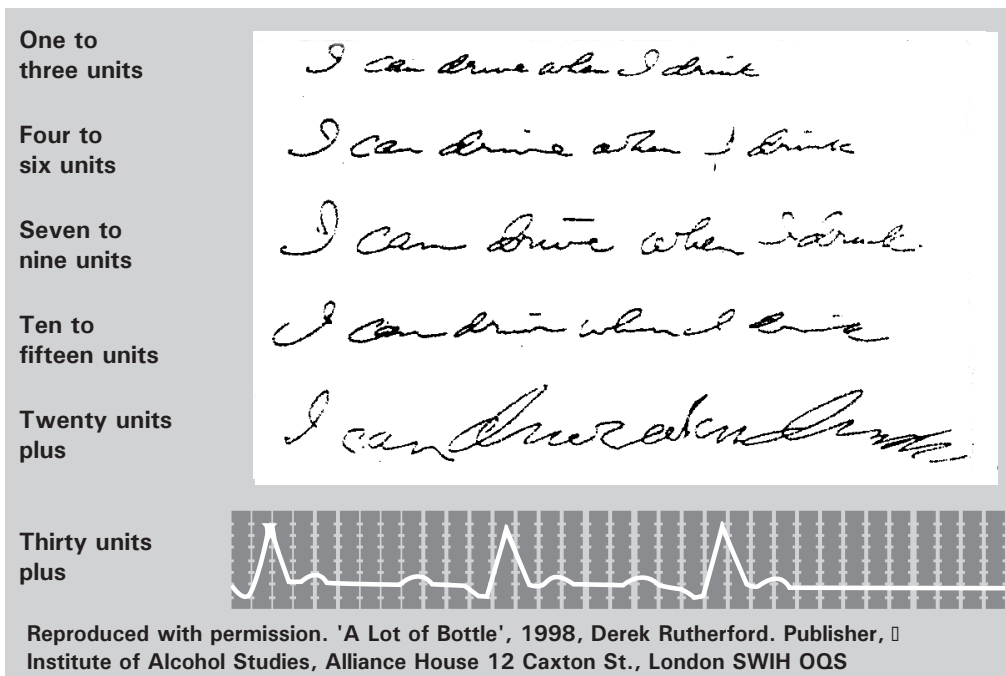 One to
three units
I can drive when I drink
Four to
six units
I can drive when I drink
Seven to
nine units
I can drive when I drink
Ten to
fifteen units
I can drive when I
Twenty units
plus
I can
Thirty units
plus
Reproduced with permission. 'A Lot of Bottle', 1998, Derek Rutherford. Publisher, ▯
Institute of Alcohol Studies, Alliance House 12 Caxton St., London SWIH OQS